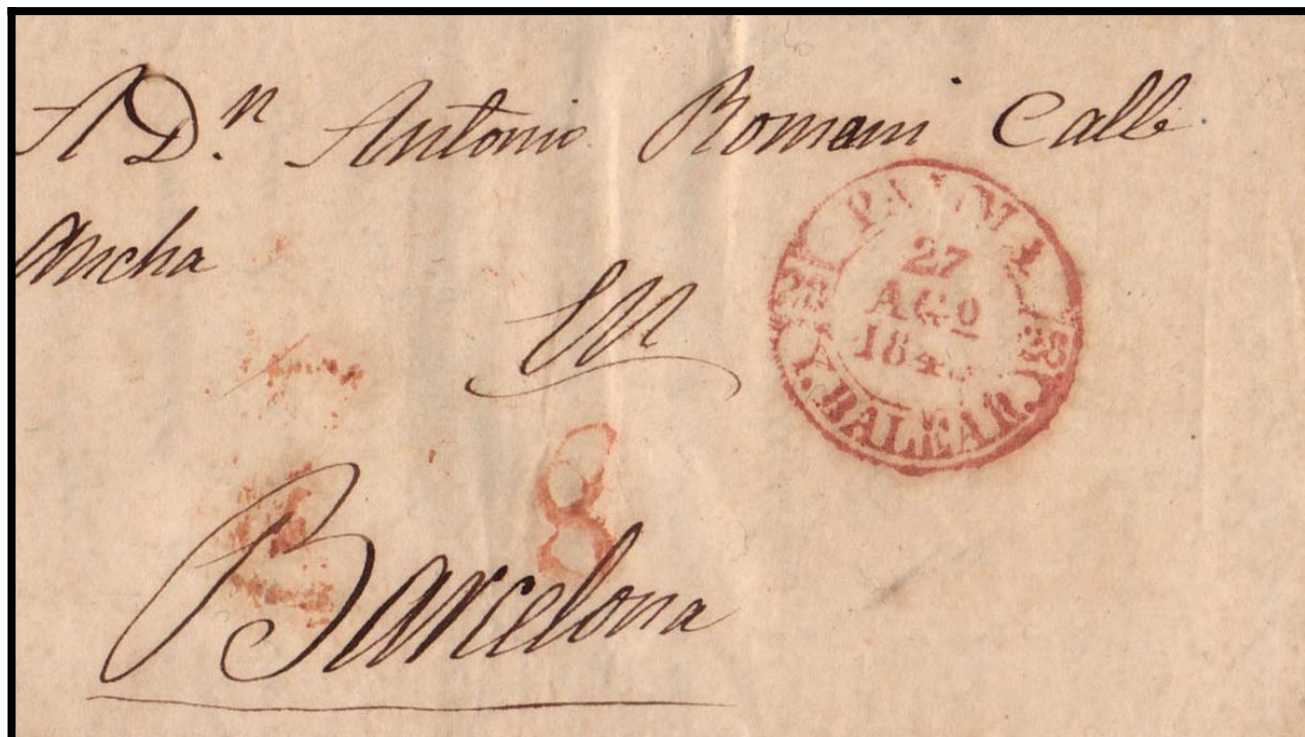 A D.n Antonio Romani Calle
Ancha
En
Barcelona
8
PALMA
27
AGO
184
Y. BALEAR.